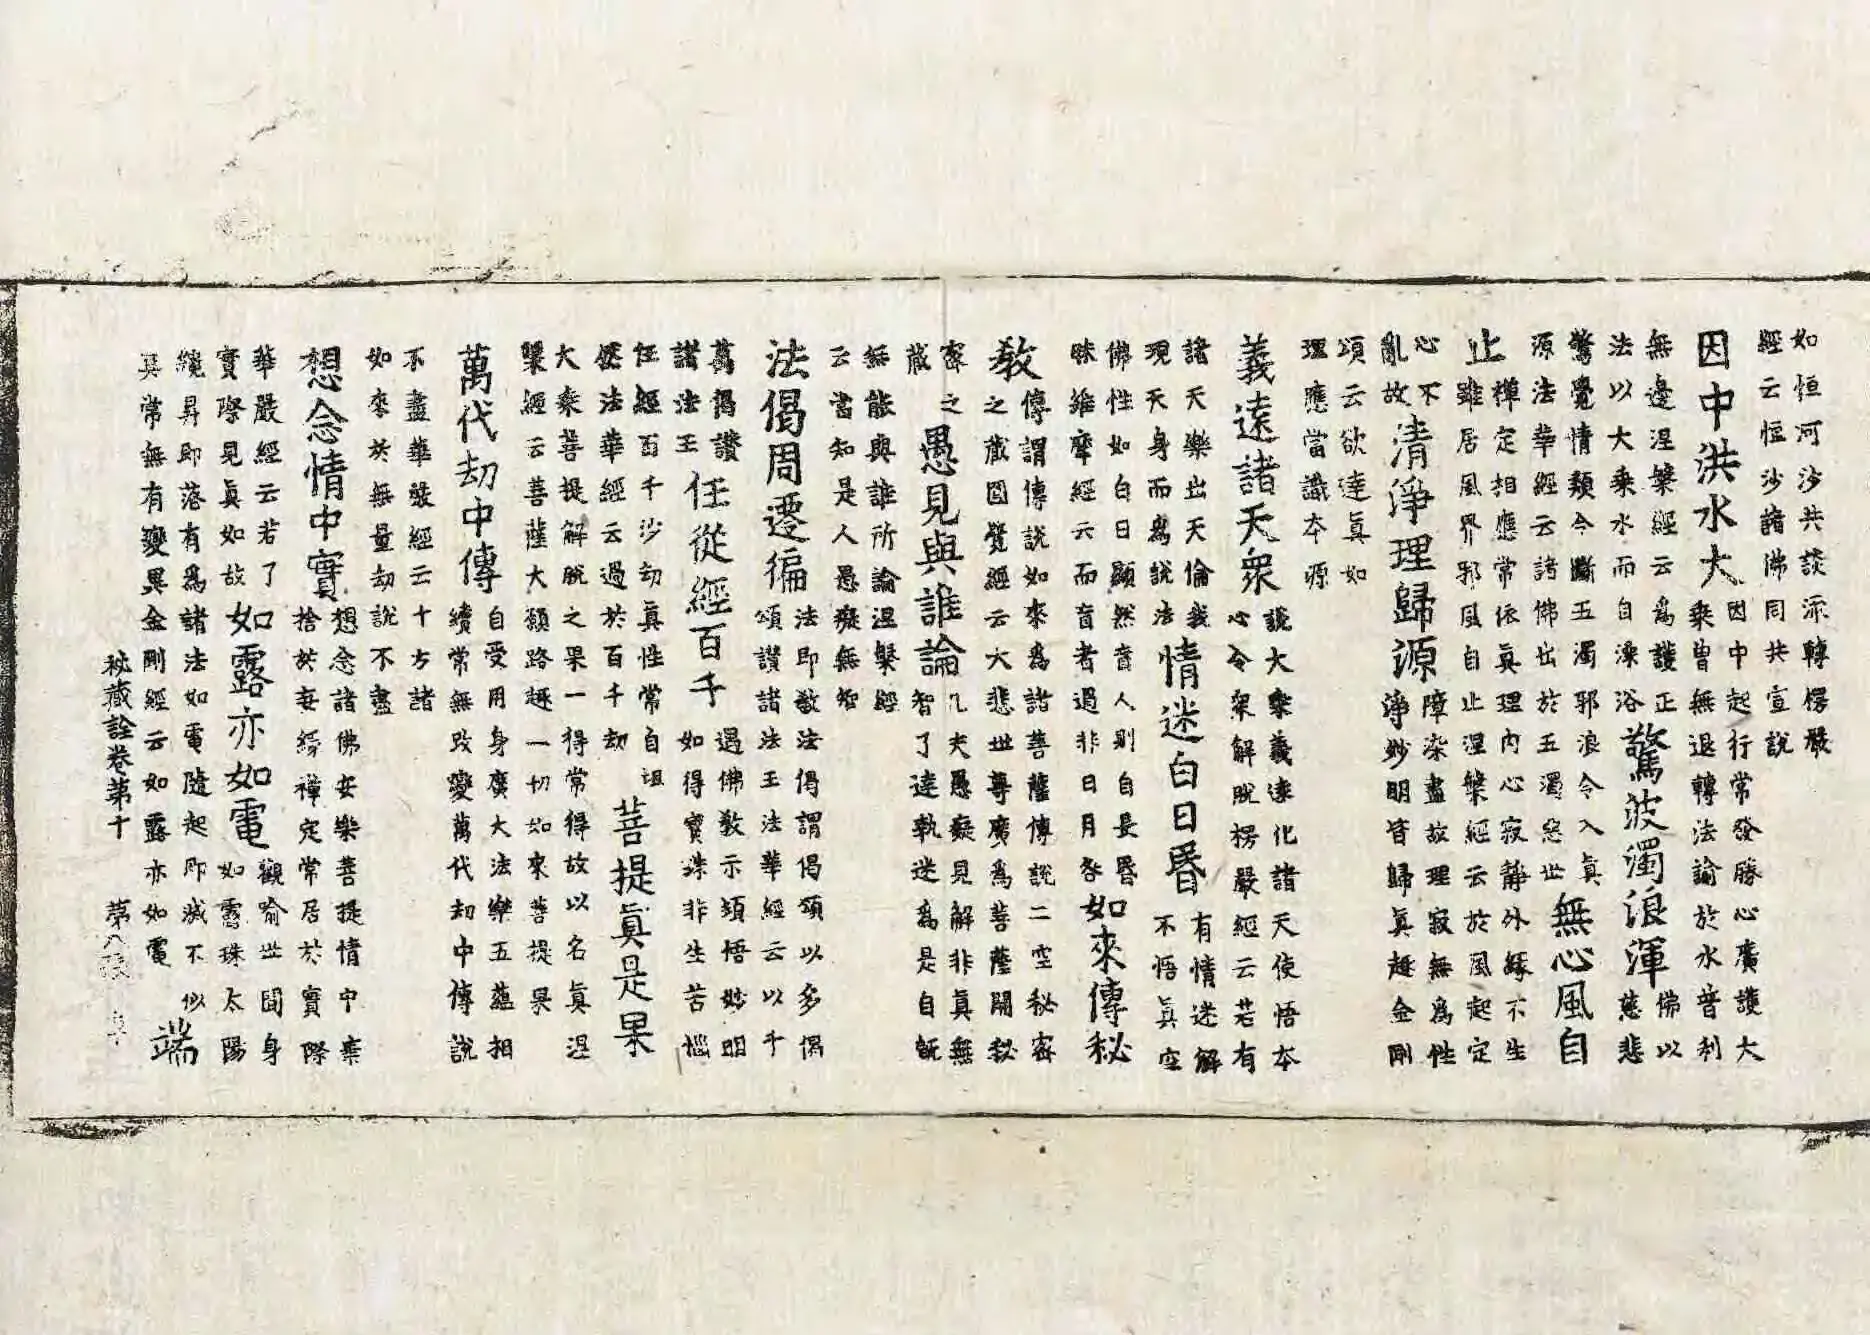 如恒河沙共談添轉楞嚴
經云恒沙諸佛同共宣說
因中洪水大
因中起行常發勝心廣護大
乘曾無退轉法諭於水普利
無邊涅槃經云爲護正
法以大乘水而自澡浴
驚波濁浪渾
佛以
慈悲
警覺情類令斷五濁邪浪令入眞
源法華經云諸佛出於五濁惡世
無心風自
止
禪定相應常依眞理內心寂靜外緣不生
雖居風界邪風自止涅槃經云於風起定
心不
亂故
清淨理歸源
障染盡故理寂無爲性
淨妙明皆歸眞趣金剛
頌云欲達眞如
理應當識本源
義遠諸天衆
說大乘義遠化諸天使悟本
心令衆解脫楞嚴經云若有
諸天樂出天倫我
現天身而爲說法
情迷白日昬
有情迷解
不悟眞空
佛性如白日顯然盲人別自長昬
昧維摩經云而盲者過非日月咎
如來傳秘
教
傳謂傳說如來爲諸菩薩傳說二空秘密
之藏圓覺經云大悲世尊廣爲菩薩開秘
密之
藏
愚見與誰論
凡夫愚癡見解非眞無
智了達執迷爲是自旣
無能與誰所論涅槃經
云當知是人愚癡無智
法偈周遷徧
法即敎法偈謂偈頌以多偈
頌讚諸法王法華經云以千
萬偈讚
諸法王
任從經百千
遇佛敎示頓悟妙明
如得寶珠非生苦惱
任經百千沙劫眞性常自
然法華經云過於百千劫
菩提眞是果
大乘菩提解脫之果一得常得故以名眞涅
槃經云菩薩大願路趣一切如來菩提果
萬代劫中傳
自受用身廣大法樂五蘊相
續常無改變萬代劫中傳說
不盡華嚴經云十方諸
如來於無量劫說不盡
想念情中實
想念諸佛安樂菩提情中棄
捨於妄緣禪定常居於實際
華嚴經云若了
實際見眞如故
如露亦如電
觀喻世間身
如露珠太陽
纔昇即落有爲諸法如電隨起即滅不似
眞常無有變異金剛經云如露亦如電
端
秘藏詮卷第十 第八張